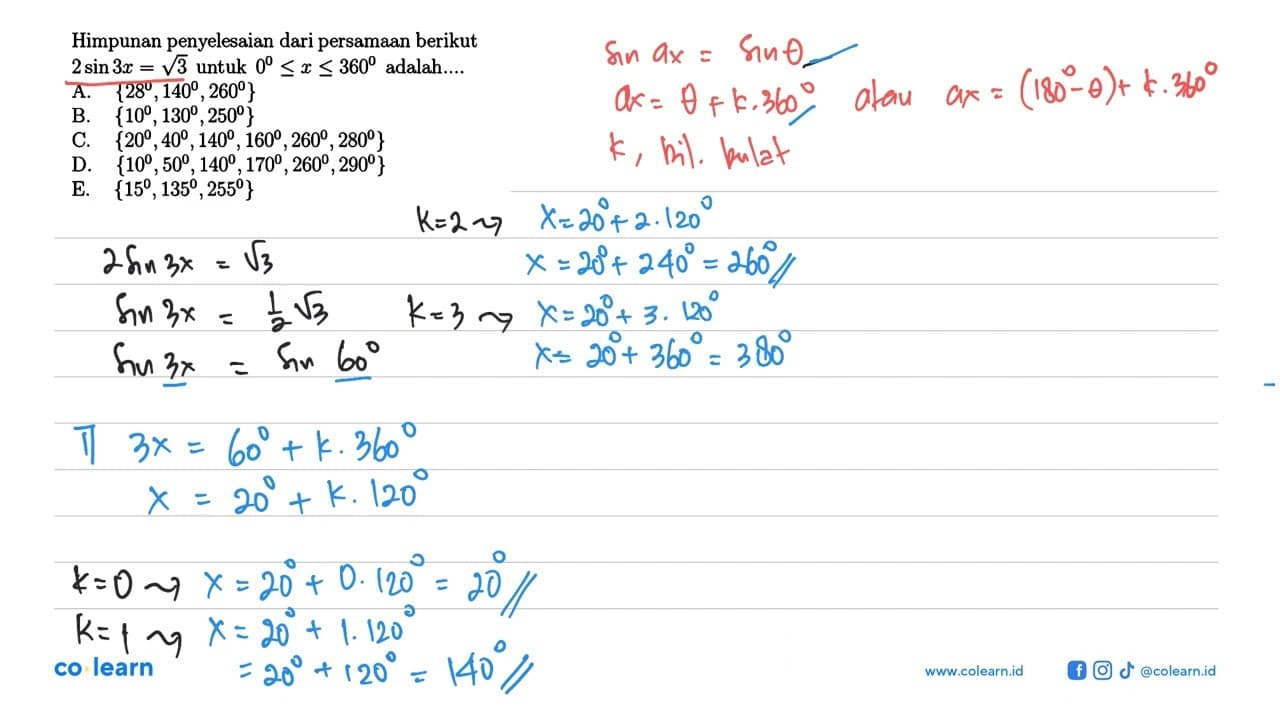 Himpunan penyelesaian dari persamaan berikut
2 sin 3x = √3 untuk 0⁰ ≤ x ≤ 360⁰ adalah....
A. {28⁰, 140⁰, 260⁰}
B. {10⁰, 130⁰, 250⁰}
C. {20⁰, 40⁰, 140⁰, 160⁰, 260⁰, 280⁰}
D. {10⁰, 50⁰, 140⁰, 170⁰, 260⁰, 290⁰}
E. {15⁰, 135⁰, 255⁰}
sin ax = sin θ
ax = θ + k.360⁰ atau ax = (180⁰ - θ) + k.360⁰
k, bil. bulat
2 sin 3x = √3
sin 3x = 1/2 √3
sin 3x = sin 60⁰
I] 3x = 60⁰ + k.360⁰
x = 20⁰ + k.120⁰
k=0 ⤳ x = 20⁰ + 0.120⁰ = 20⁰ //
k=1 ⤳ x = 20⁰ + 1.120⁰
= 20⁰ + 120⁰ = 140⁰ //
k=2 ⤳ x = 20⁰ + 2.120⁰
x = 20⁰ + 240⁰ = 260⁰ //
k=3 ⤳ x = 20⁰ + 3.120⁰
x = 20⁰ + 360⁰ = 380⁰
co learn
www.colearn.id
@colearn.id